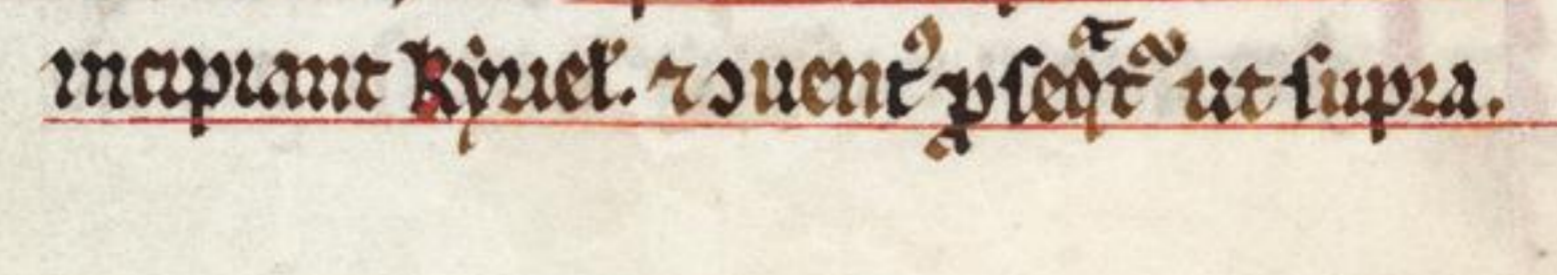 incipiant kyriel̓. ⁊ ↄuentꝰ ꝓseqͣt᷑ ut supra.